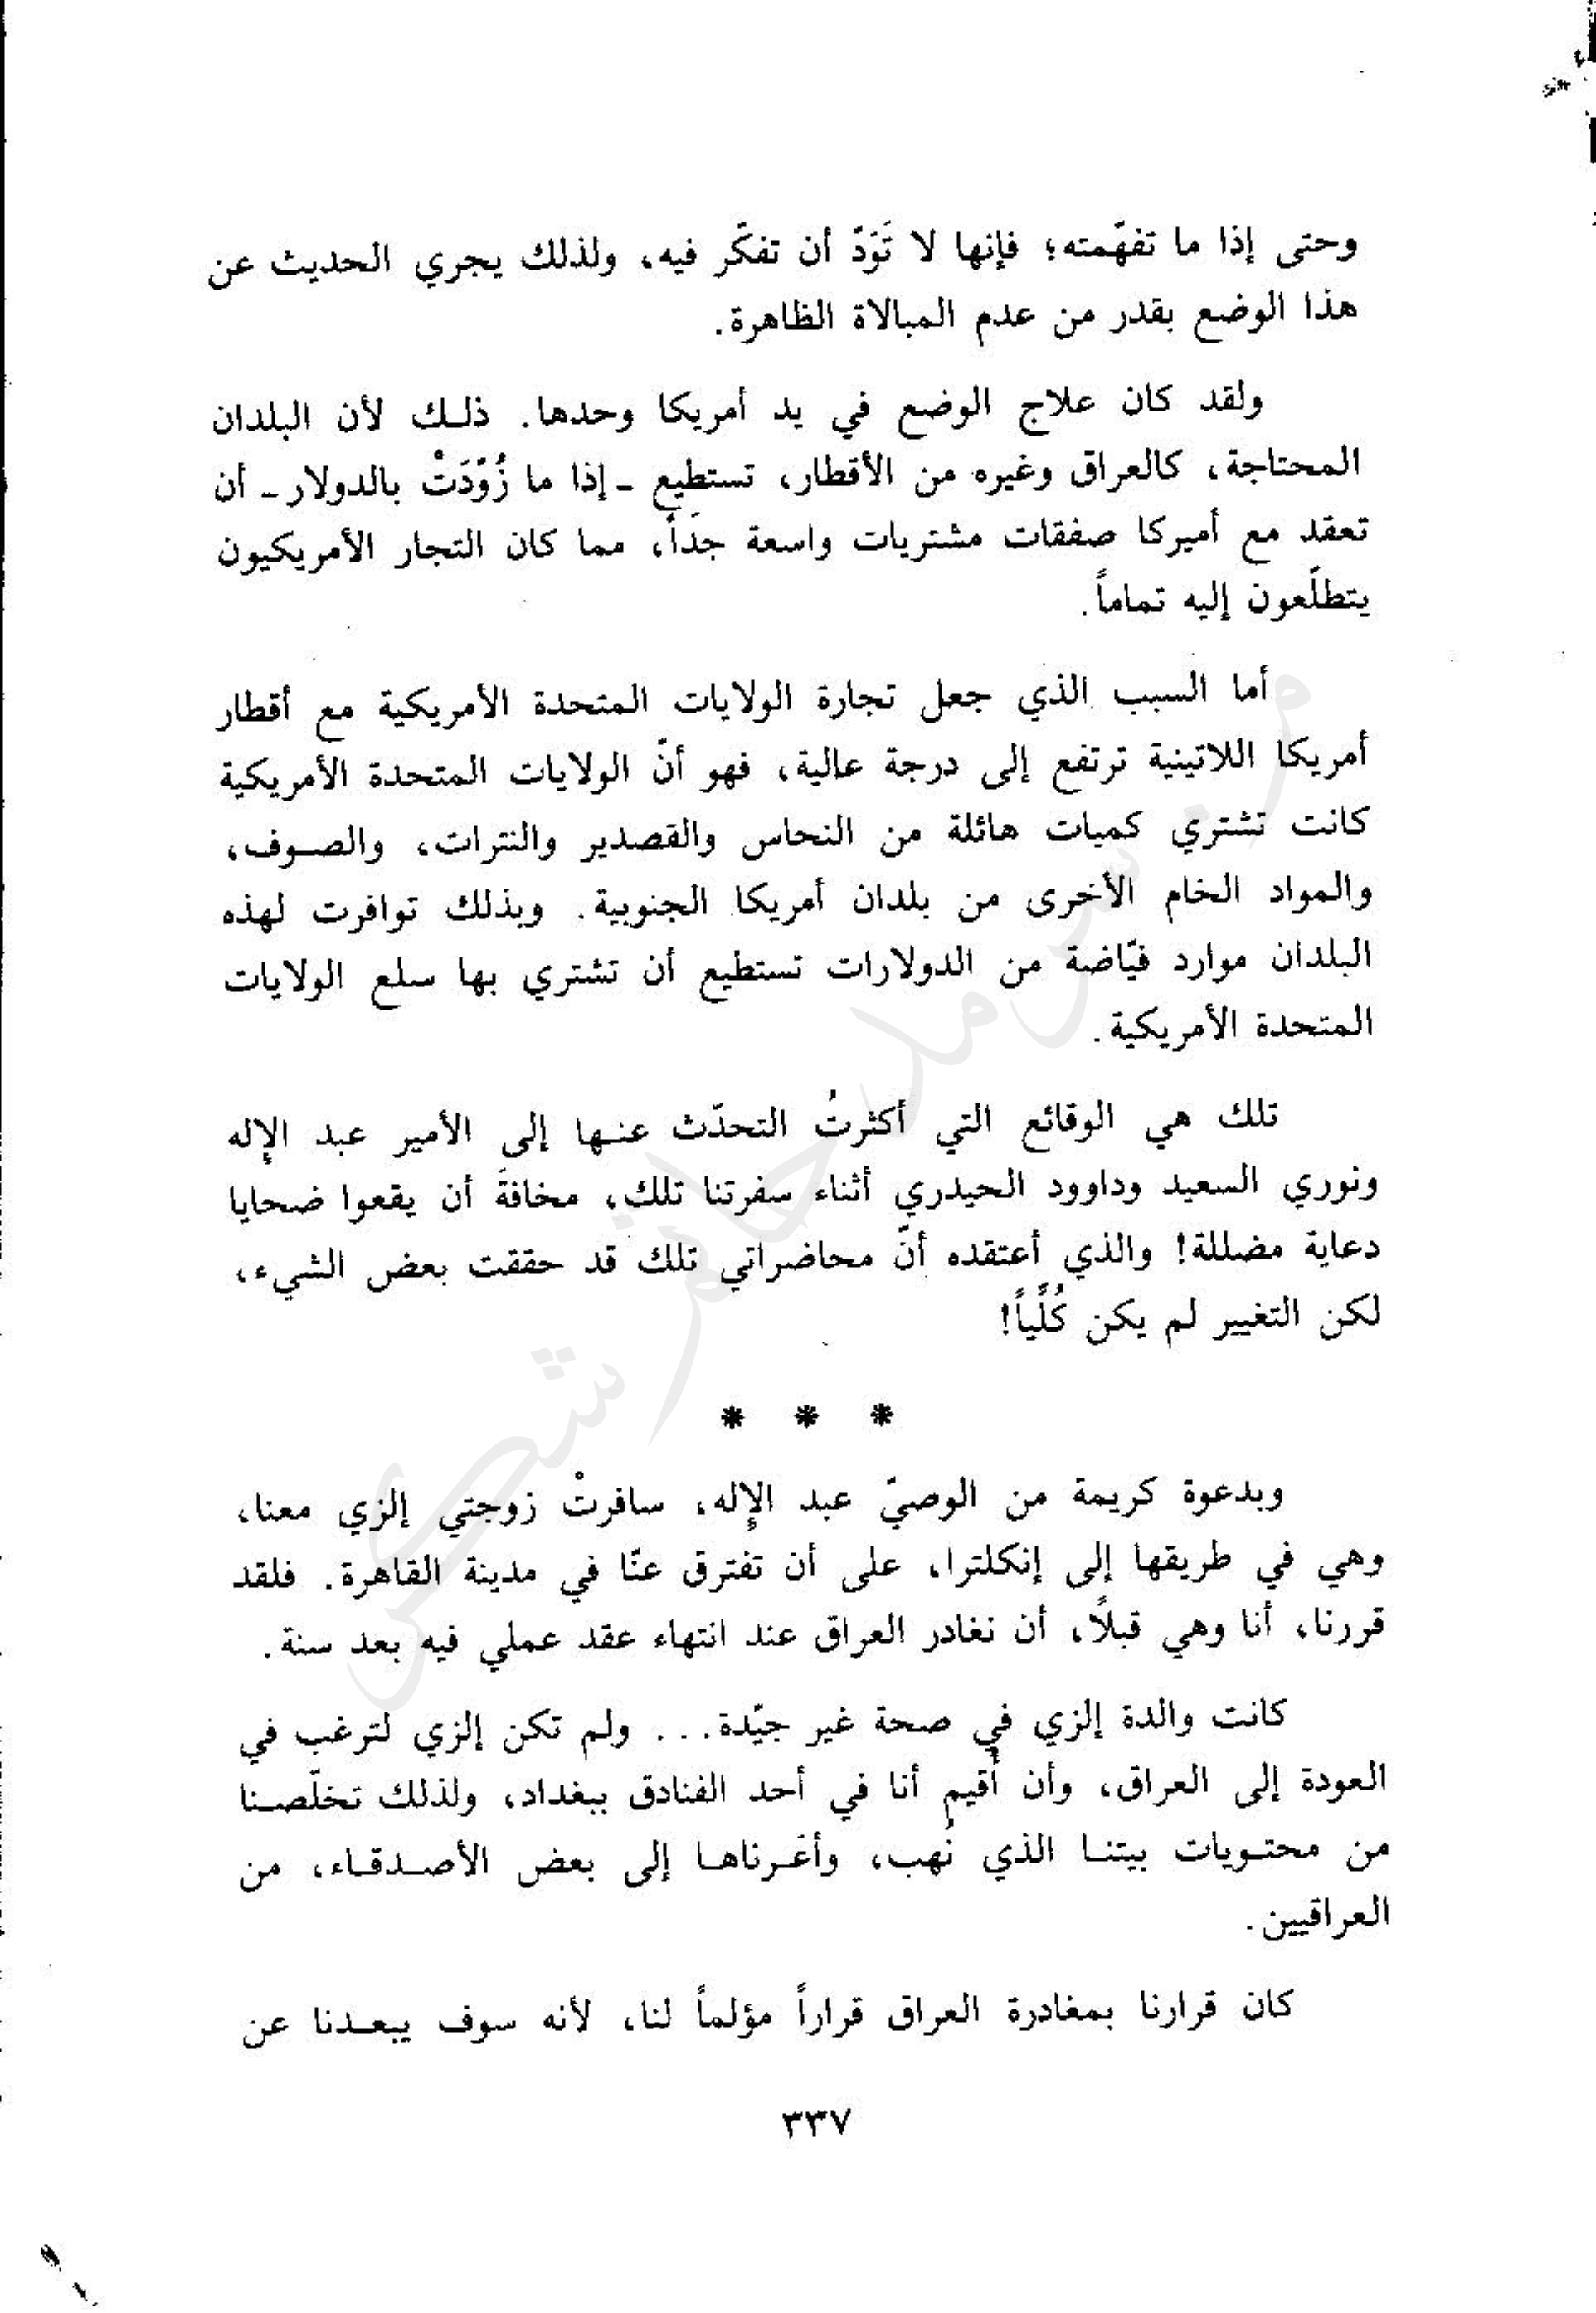 وحتى إذا ما تفهّمته؛ فإنها لا تَوَدّ أن تفكّر فيه، ولذلك يجري الحديث عن
هذا الوضع بقدر من عدم المبالاة الظاهرة.
ولقد كان علاج الوضع في يد أمريكا وحدها. ذلك لأن البلدان
المحتاجة، كالعراق وغيره من الأقطار، تستطيع - إذا ما زُوّدَتْ بالدولار - أن
تعقد مع أميركا صفقات مشتريات واسعة جدَاً، مما كان التجار الأمريكيون
يتطلّعون إليه تماماً.
أما السبب الذي جعل تجارة الولايات المتحدة الأمريكية مع أقطار
أمريكا اللاتينية ترتفع إلى درجة عالية، فهو أنّ الولايات المتحدة الأمريكية
كانت تشتري كميات هائلة من النحاس والقصدير والنترات، والصوف،
والمواد الخام الأخرى من بلدان أمريكا الجنوبية. وبذلك توافرت لهذه
البلدان موارد فيّاضة من الدولارات تستطيع أن تشتري بها سلع الولايات
المتحدة الأمريكية.
تلك هي الوقائع التي أكثرتُ التحدّث عنها إلى الأمير عبد الإله
ونوري السعيد وداوود الحيدري أثناء سفرتنا تلك، مخافةَ أن يقعوا ضحايا
دعاية مضللة! والذي أعتقده أنّ محاضراتي تلك قد حققت بعض الشيء،
لكن التغيير لم يكن كُلّياً!
* * *
وبدعوة كريمة من الوصيّ عبد الإله، سافرتْ زوجتي إلزي معنا،
وهي في طريقها إلى إنكلترا، على أن تفترق عنّا في مدينة القاهرة. فلقد
قررنا، أنا وهي قبلاً، أن نغادر العراق عند انتهاء عقد عملي فيه بعد سنة.
كانت والدة إلزي في صحة غير جيّدة... ولم تكن إلزي لترغب في
العودة إلى العراق، وأن أُقيم أنا في أحد الفنادق ببغداد، ولذلك تخلّصنا
من محتويات بيتنا الذي نُهب، وأعرناها إلى بعض الأصدقاء، من
العراقيين.
كان قرارنا بمغادرة العراق قراراً مؤلماً لنا، لأنه سوف يبعدنا عن
٣٣٧